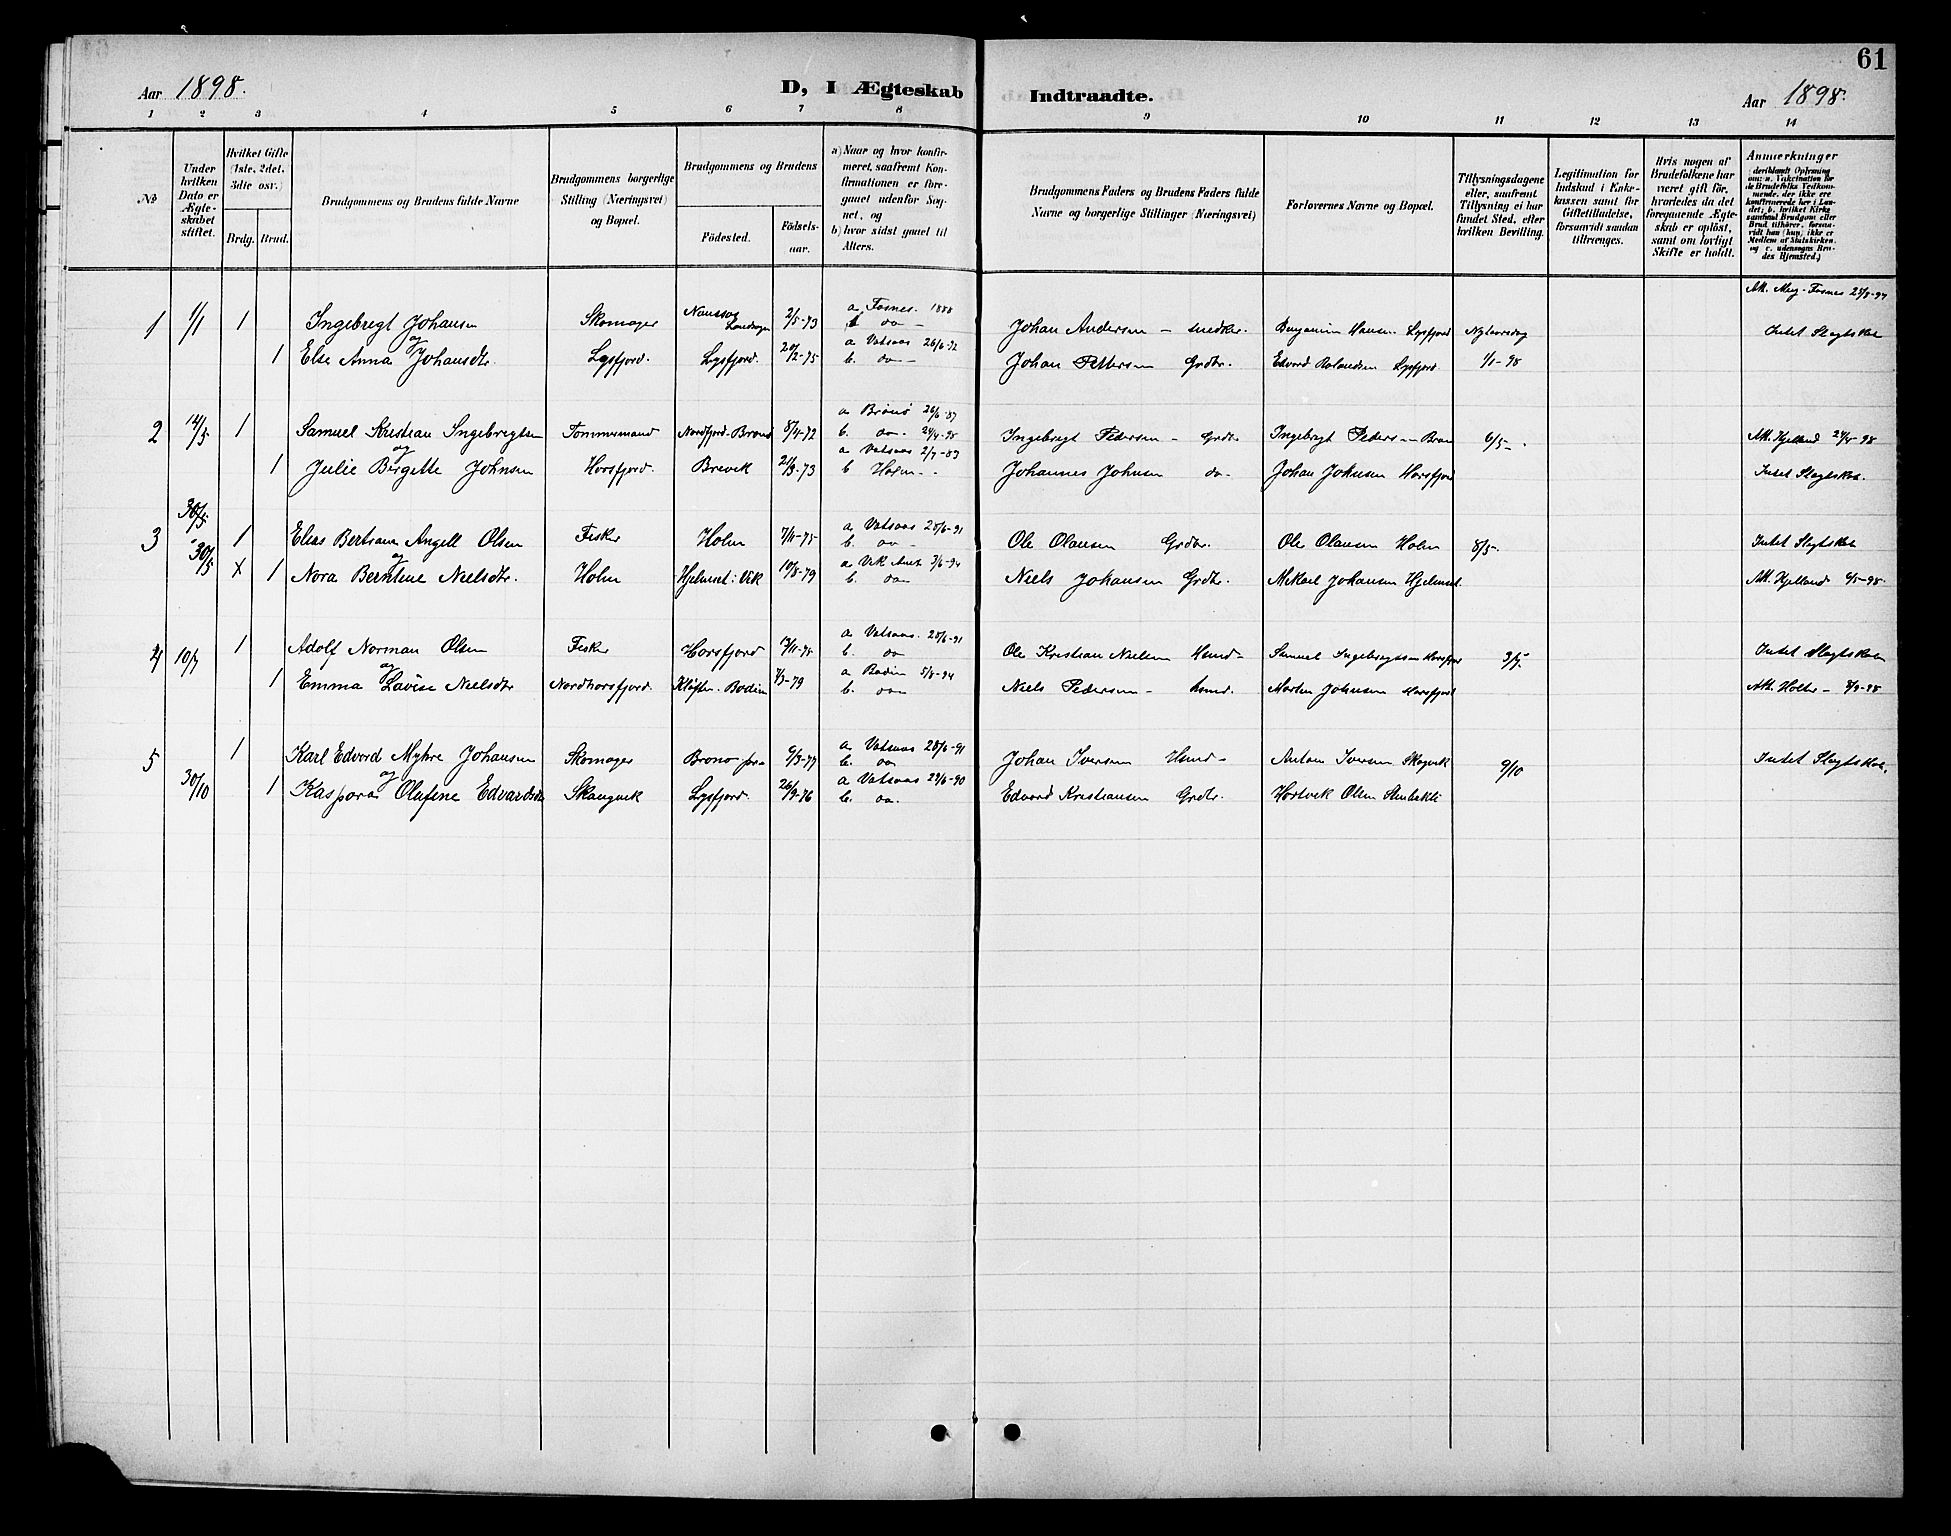 61
Aar 1898. D, I Ægteskab Indtraadte. Aar 1898.
1 2 3 4 5 6 7 8 9 10 11 12 13 14
No
Under hvilken Dato er Ægteskabet stiftet.
Hvilket Gifte (1ste, 2det, 3die osv.)
Brdg. Brud.
Brudgommens og Brudens fulde Navne
Brudgommens borgerlige Stilling (Næringsvei) og Bopæl.
Brudgommens og Brudens
Födested.
Födsels-aar.
a) Naar og hvor konfirmeret, saafremt Konfirmationen er foregaaet udenfor Sognet, og
b) hvor sidst gaaet til Alters.
Brudgommens Faders og Brudens Faders fulde Navne og borgerlige Stillinger (Næringsvei)
Forlovernes Navne og Bopæl.
Tillysningsdagene eller, saafremt Tillysning ei har fundet Sted, efter hvilken Bevilling.
Legitimation for Indskud i Enkekassen samt for Giftetilladelse, forsaavidt saadan tiltrænges.
Hvis nogen af Brudefolkene har været gift før, hvorledes da det foregaaende Ægteskab er oplöst, samt om lovligt Skifte er holdt.
Anmærkninger (deriblandt Oplysning om: a. Vakcination for de Brudefolks Vedkommende, der ikke ere konfirmerede her i Landet; b. hvilket Kirkesamfund Brudgom eller Brud tilhörer, forsaavidt han (hun) ikke er Medlem af Statskirken, og c. udensogns Brudes Hjemsted.)
1 1/1 1 Ingebrigt Johansen Skomager 2/5-73 a Fosnes. 1888 Johan Andersen - Benjamin Hansen Lysfjord Nytaarsdag Intet Slegtskab
og
1 Else Anna Johansdtr. Lysfjord. Lysfjord. 20/2-75 a Vatsaas 26/6-92 b. do - Johan Pettersen Grdbr. Edvard Rolandsen Lysfjord. 1/1-98
2 12/5 1 Samuel Kristian Ingebrigtsen Tømmermand Nordfjord-Brønø 8/4-72 a Brønø 26/6-87 b. do. 24/4-98 Ingebrigt Pedersen - Grdbr Ingebrigt Peders - 6/5- Att. Hjelland 24/4-98
og
1 Julie Birgitte Johnsen Horsfjord. Brevik 21/9-73 a Vatsaas 2/7-89 b Holm - Johannes Johnsen do- Johan Johnsen Horsfjord Intet Slegtskab.
3 30/5 30/5 1 Elias Bertram Angell Olsen Fisker Holm 7/11-75 a Vatsaas 28/6-91 b. do - Ole Olausen Grdbr. Ole Olausen Holm 8/5- Intet Slegtskab
og
X 1 Nora Berntine Nielsdtr. Holm Hjelmset i Vik 10/8-79 a Vik 3/6-94 b. do Niels Johansen Grdbr. Mikael Johansen Hjelmset. Att. Hjelland 6/5-98.
4 10/7 1 Adolf Norman Olsen Fisker Horsfjord a Vatsaas. 28/6-91 b. do Ole Kristian Nielsen Hsmd- Samuel Ingebrigtsen Horsfjord Intet Slegtskab
og
1 Emma Lovise Nielsdtr Nordhorsfjord. Bodin 1/3-79 a Bodin b. do Niels Pedersen - hsmd. Morten Johnsen Horsfjord Att. Holter -
5 30/10 1 Karl Edvard Myhre Johansen Skomager Brønø a Vatsaas 28/6-91 b. do Johan Iversen Hsmd - Anton Iversen 9/10 Intet Slegtskab.
og
1 Kaspara Olufine Edvardsdtr Skaugvik Lysfjord. 26/9-76 a Vatsaas b. do. Edvard Kristiansen Grdbr. Hartvik Olsen